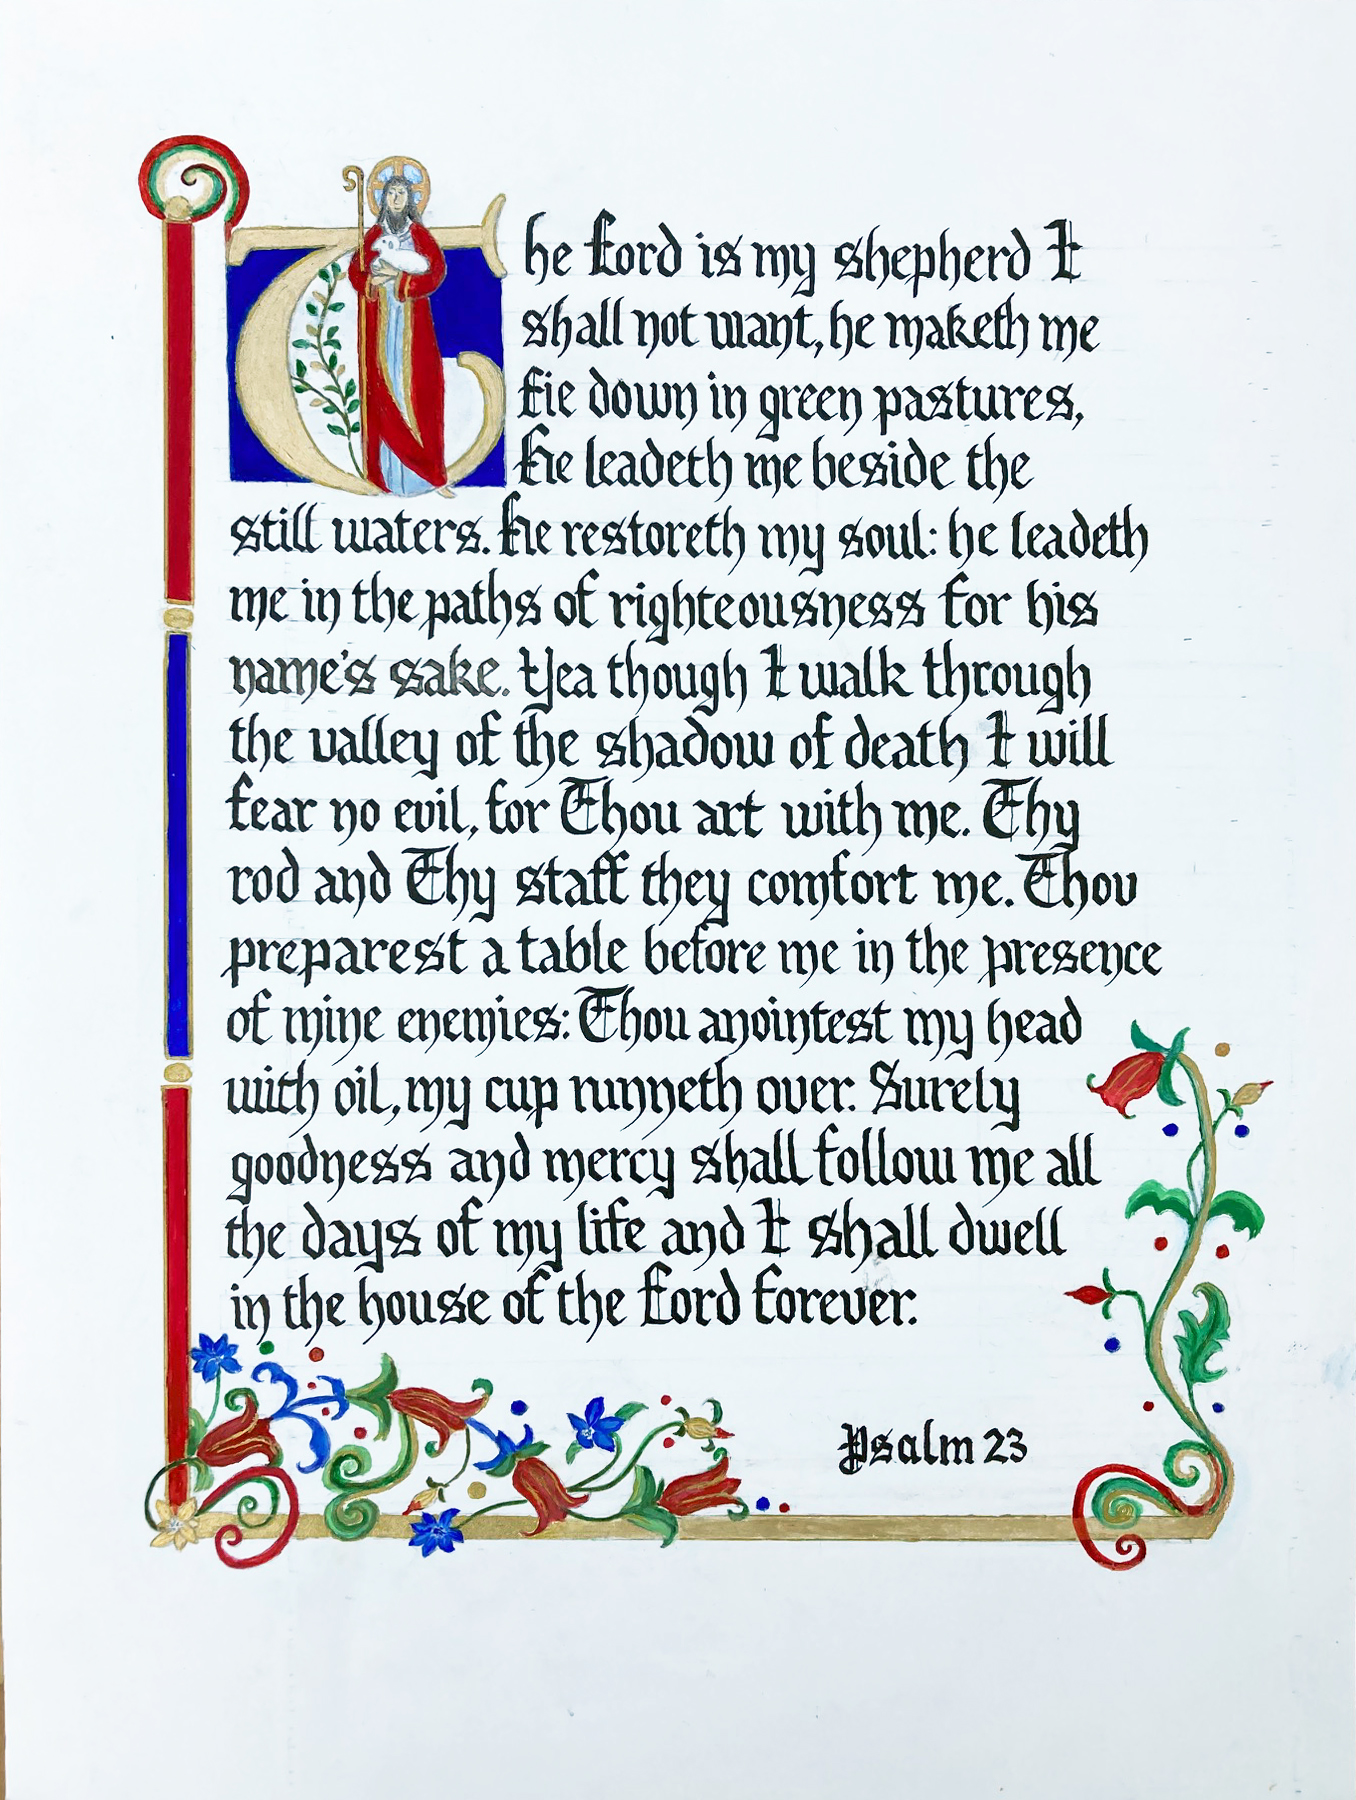 The Lord is my shepherd I
shall not want, he maketh me
lie down in green pastures,
He leadeth me beside the
still waters. He restoreth my soul: he leadeth
me in the paths of righteousness for his
name's sake. Yea though I walk through
the valley of the shadow of death I will
fear no evil, for Thou art with me. Thy
rod and Thy staff they comfort me. Thou
preparest a table before me in the presence
of mine enemies: Thou anointest my head
with oil, my cup runneth over. Surely
goodness and mercy shall follow me all
the days of my life and I shall dwell
in the house of the Lord forever.
Psalm 23